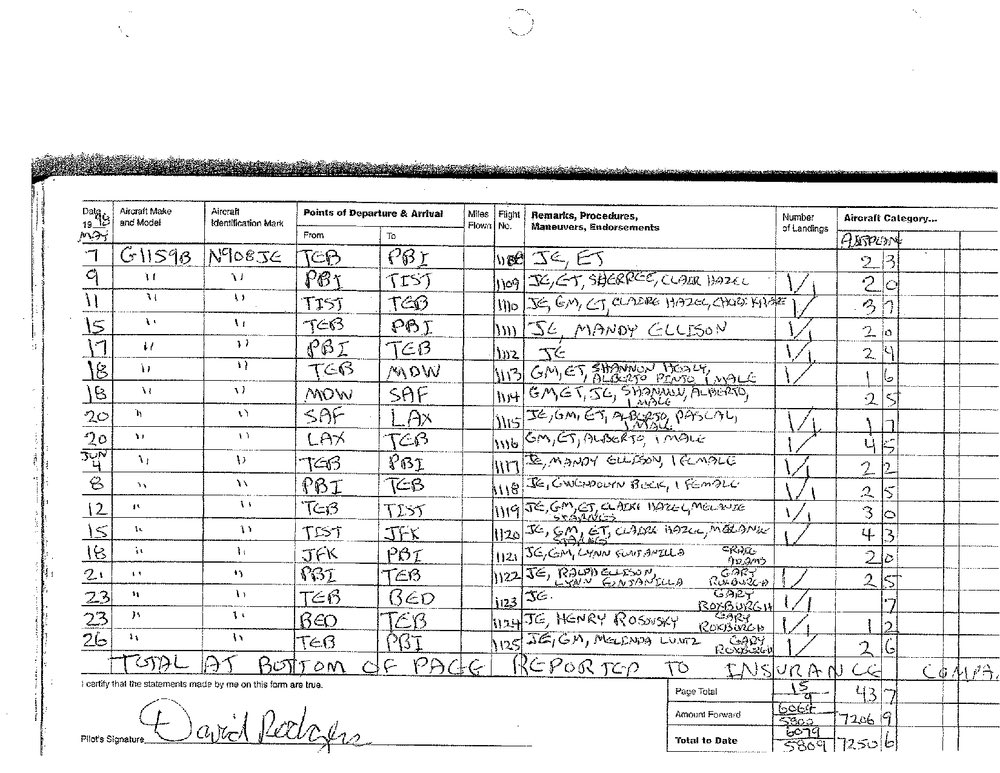 Date 1998 Aircraft Make and Model Aircraft Identification Mark Points of Departure & Arrival Miles Flown Flight No. Remarks, Procedures, Maneuvers, Endorsements Number of Landings Aircraft Category...
MAY From To AIRPLANE
7 G1159B N908JE TEB PBI JE, ET 2 3
9 " " PBI TIST 1109 JE, ET, SHERREE, CLAIR HAZEL 1/1 2 0
11 " " TIST TEB 1110 JE, GM, ET, CLAIRE HAZEL, 3 7
15 " " TEB PBI 1111 JE, MANDY ELLISON 1/1 2 0
17 " " PBI TEB 1112 JE 1/1 2 4
18 " " TEB MDW 1113 GM, ET, SHANNON HEALY, ALBERTO PINTO, 1 MALE 1/ 1 6
18 " " MDW SAF 1114 GM, ET, JE, SHANNON, ALBERTO, 1 MALE 2 5
20 " " SAF LAX 1115 JE, GM, ET, ALBERTO, PASCAL, 1 MALE 1/1 1 7
20 " " LAX TEB 1116 GM, ET, ALBERTO, 1 MALE 1/ 4 5
JUN 4 " " TEB PBI 1117 JE, MANDY ELLISON, 1 FEMALE 1/1 2 2
8 " " PBI TEB 1118 JE, GWENDOLYN BECK, 1 FEMALE 1/1 2 5
12 " " TEB TIST 1119 JE, GM, ET, CLAIRE HAZEL, MELANIE STARNES 1/1 3 0
15 " " TIST JFK 1120 JE, GM, ET, CLAIRE HAZEL, MELANIE STARNES 1/ 4 3
18 " " JFK PBI 1121 JE, GM, LYNN FONTANILLA CRAIG ADAMS 2 0
21 " " PBI TEB 1122 JE, RALPH ELLISON, LYNN FONTANILLA GARY ROXBURGH 1/ 2 5
23 " " TEB BED 1123 JE. GARY ROXBURGH 1/1 7
23 " " BED TEB 1124 JE, HENRY ROSOVSKY GARY ROXBURGH 1/1 1 2
26 " " TEB PBI 1125 JE, GM, MELINDA LUNTZ GARY ROXBURGH 1/ 2 6
TOTAL AT BOTTOM OF PAGE REPORTED TO INSURANCE COMPA
I certify that the statements made by me on this form are true. Page Total 15 9 43 7
Amount Forward 6064 5800 7206 9
Pilot's Signature David Rodgers Total to Date 6079 5809 7250 6